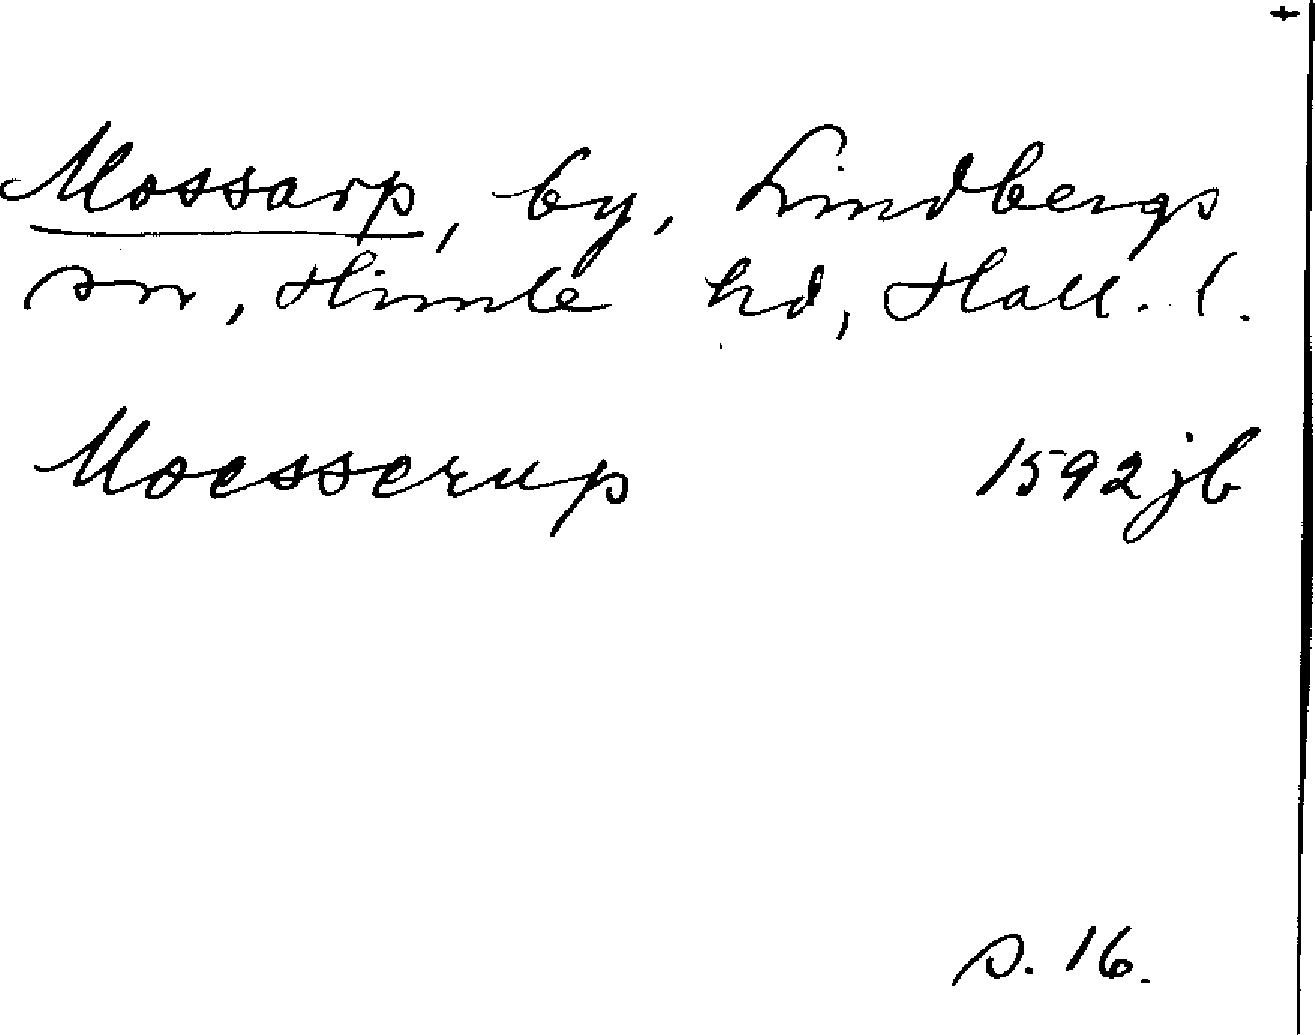 Mossarp, by, Lindbergs
sn, Himle hd, Hall. l.
Moesserup 1592 jb
s. 16.